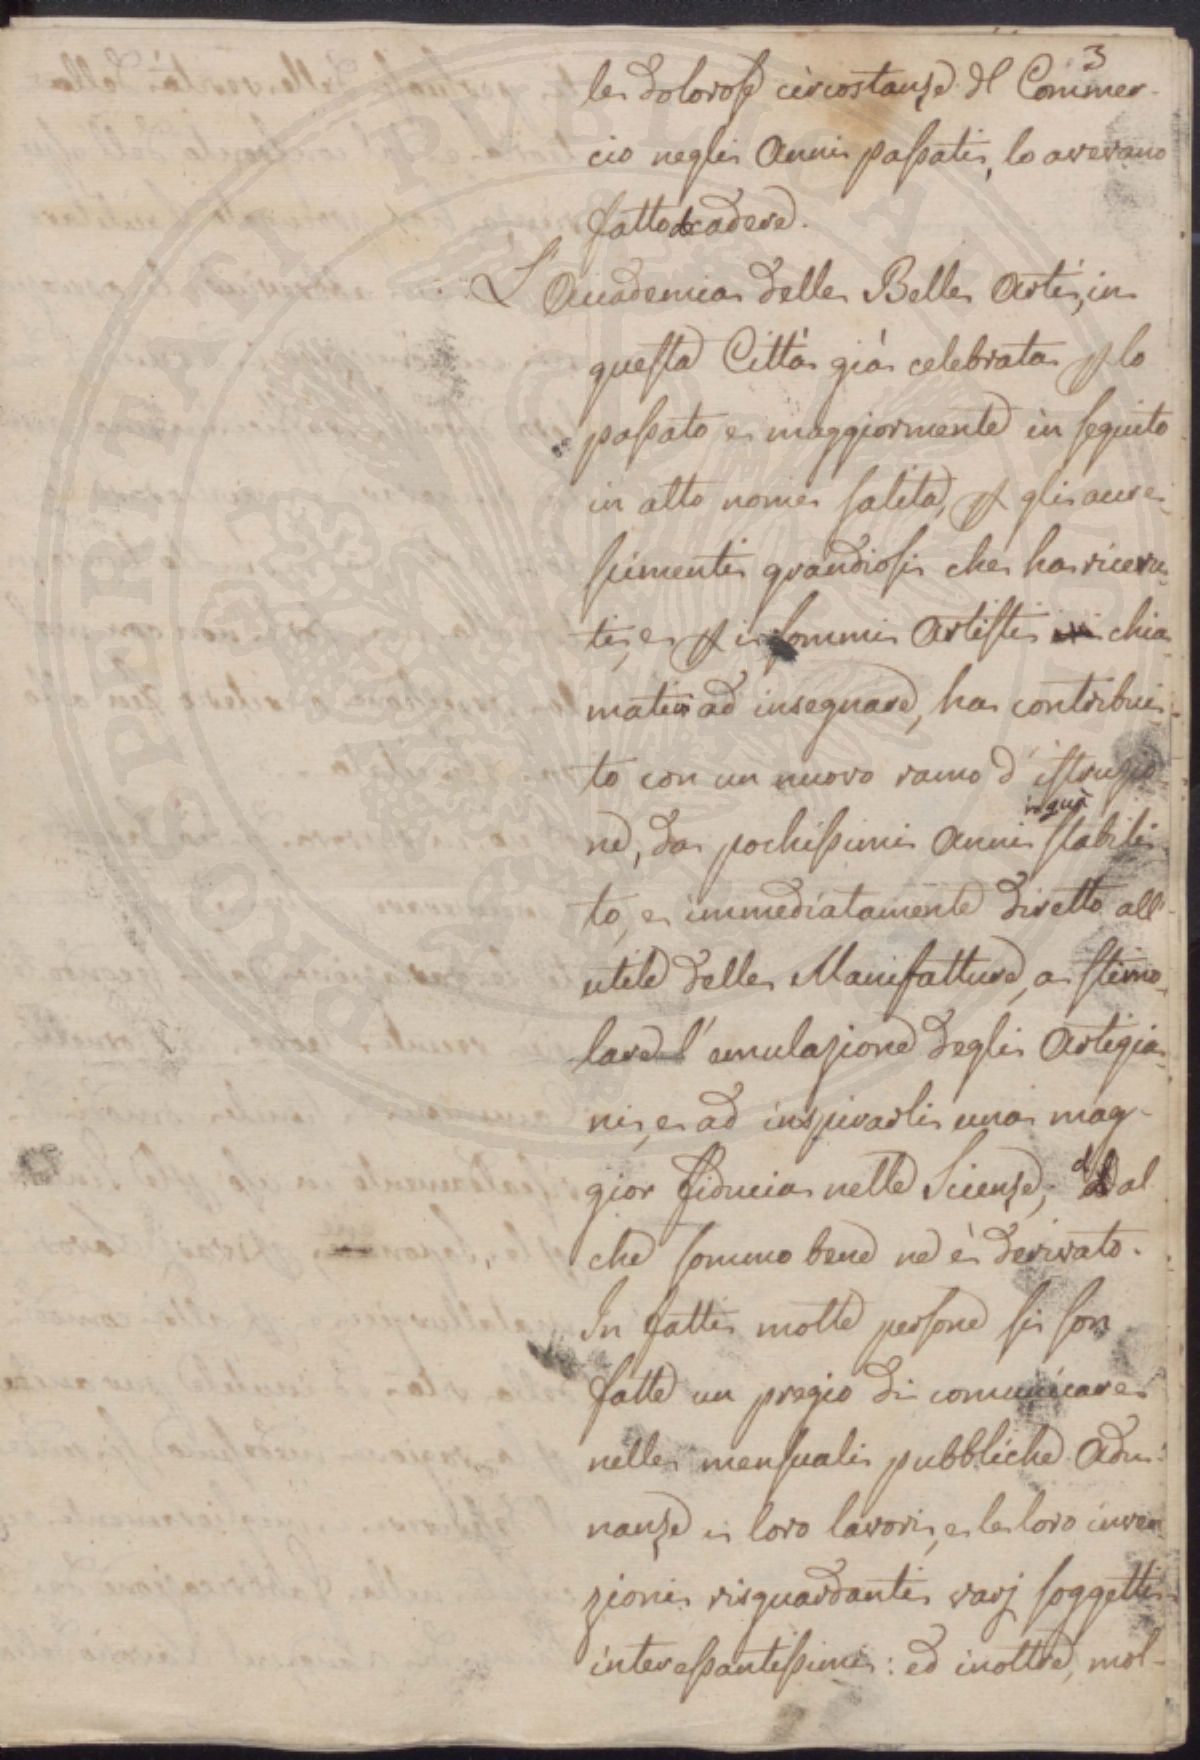 3
le dolorose circostanze del Commer-
cio negli Anni passati, lo avevano
fatto decadere.
L'Accademia delle Belle Arti, in
questa Città già celebrata p lo
passato e maggiormente in seguito
in alto nome salita, p gli accre-
scimenti grandiosi che ha ricevu-
ti, e p i sommi Artisti chia-
mati ad insegnare, ha contribui-
to con un nuovo ramo d'istruzio-
in quà
ne, da pochissimi Anni stabili-
to, e immediatamente diretto all'
utile delle Manifatture, a stimo-
lare l'emulazione degli Artigia-
ni, e ad inspirarli una mag-
gior fiducia nelle Scienze, dal
che sommo bene ne è derivato.
In fatti molte persone si son
fatte un pregio di comunicare
nelle mensuali pubbliche Adu-
nanze i loro lavori, e le loro inven-
zioni risguardanti varj soggetti
interessantissimi: ed inoltre, mol-
PROSPERITATI PUBLICAE